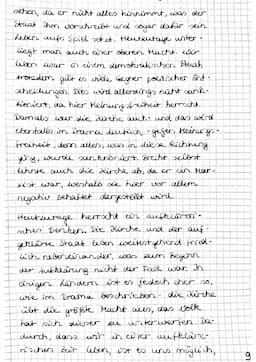 sehen, da er nicht alles hinnimmt, was der
Staat ihm vorschreibt und sogar dafür sein
Leben aufs Spiel setzt. Heutzutage unter-
liegt man auch einer oberen Macht. Wir
leben zwar in einem demokratischen Staat,
trotzdem gibt es viele Gegner politischer Ent-
scheidungen. Dies wird allerdings nicht sank-
tioniert, da hier Meinungsfreiheit herrscht.
Damals war die Kirche auch und das wird
ebenfalls im Drama deutlich - gegen Meinungs-
freiheit, denn alles, was in diese Richtung
ging, wurde sanktioniert. Brecht selbst
lehnte auch die Kirche ab, da er ein Mar-
xist war, weshalb sie hier vor allem
negativ behaftet dargestellt wird.
Heutzutage herrscht ein aufkläreri-
sches Denken. Die Kirche und der auf-
geklärte Staat leben weitestgehend fried-
lich nebeneinander, was zum Beginn
der Aufklärung nicht der Fall war. In
einigen Ländern ist es jedoch eher so,
wie im Drama beschrieben - die Kirche
übt die größte Macht aus, das Volk
hat sich dieser zu unterwerfen. Da-
durch, dass wir in einer aufkläre-
rischen Zeit leben, ist es uns möglich,
9